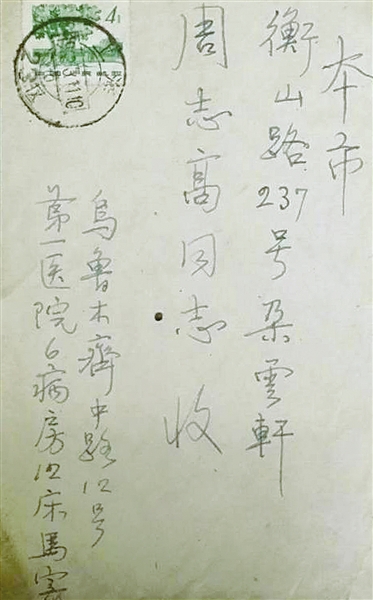 本市
衡山路237号朵雲軒
周志高同志 收
烏魯木齊中路12号
第一医院6病房12床馬寄
4分